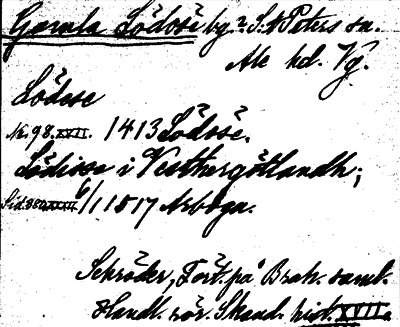 Gamla Lödöse by? S:t Peters sn.
Ale hd. Vg.
Lödese
Nr. 98. XVII. 1413 Lödöse.
Lödisse i Vesthergötlandh;
Sid. XXXIII 6/1 1517 Arboga.
Schröder, Fört. på Brah. saml.
Handl. rör. Skand. hist. XVII.